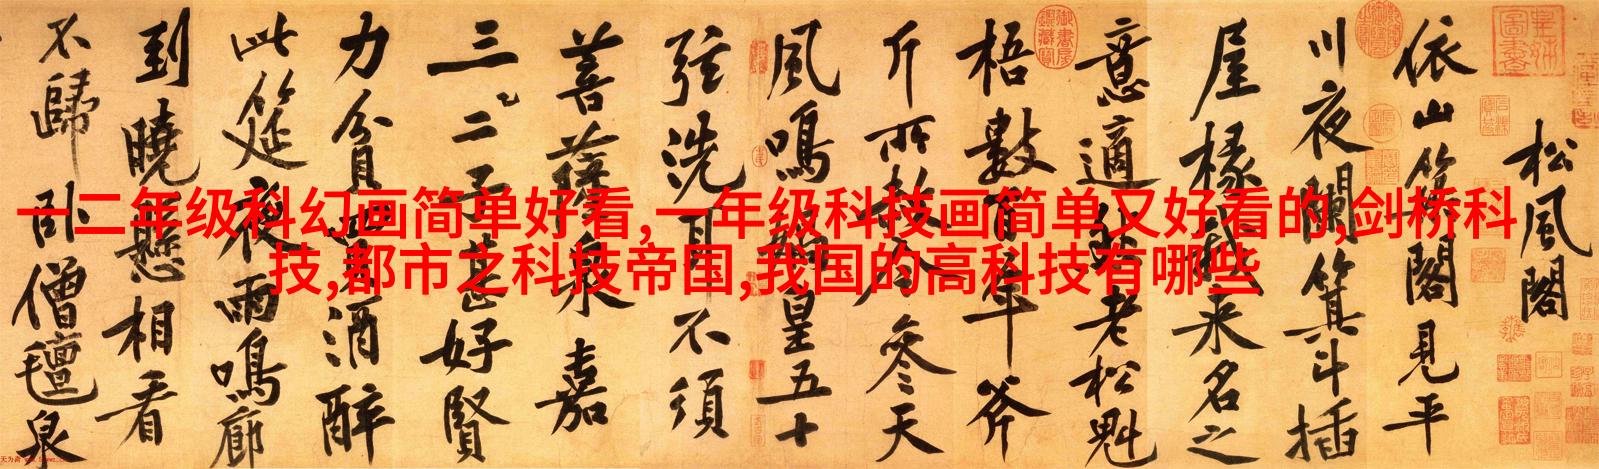 一二年级科幻画简单好看,一年级科技画简单又好看的,剑桥科
技,都市之科技帝国,我国的高科技有哪些
松風閣
依山築閣見平
川夜闌箕斗插
屋椽我來名之
意適然老松魁
梧數百年斧
斤所赦今參天
風鳴媧皇五十
弦洗耳不須
菩薩泉嘉
三二子甚好賢
力貧買酒醉
此筵夜雨鳴廊
到曉懸相看
不歸臥僧氈泉